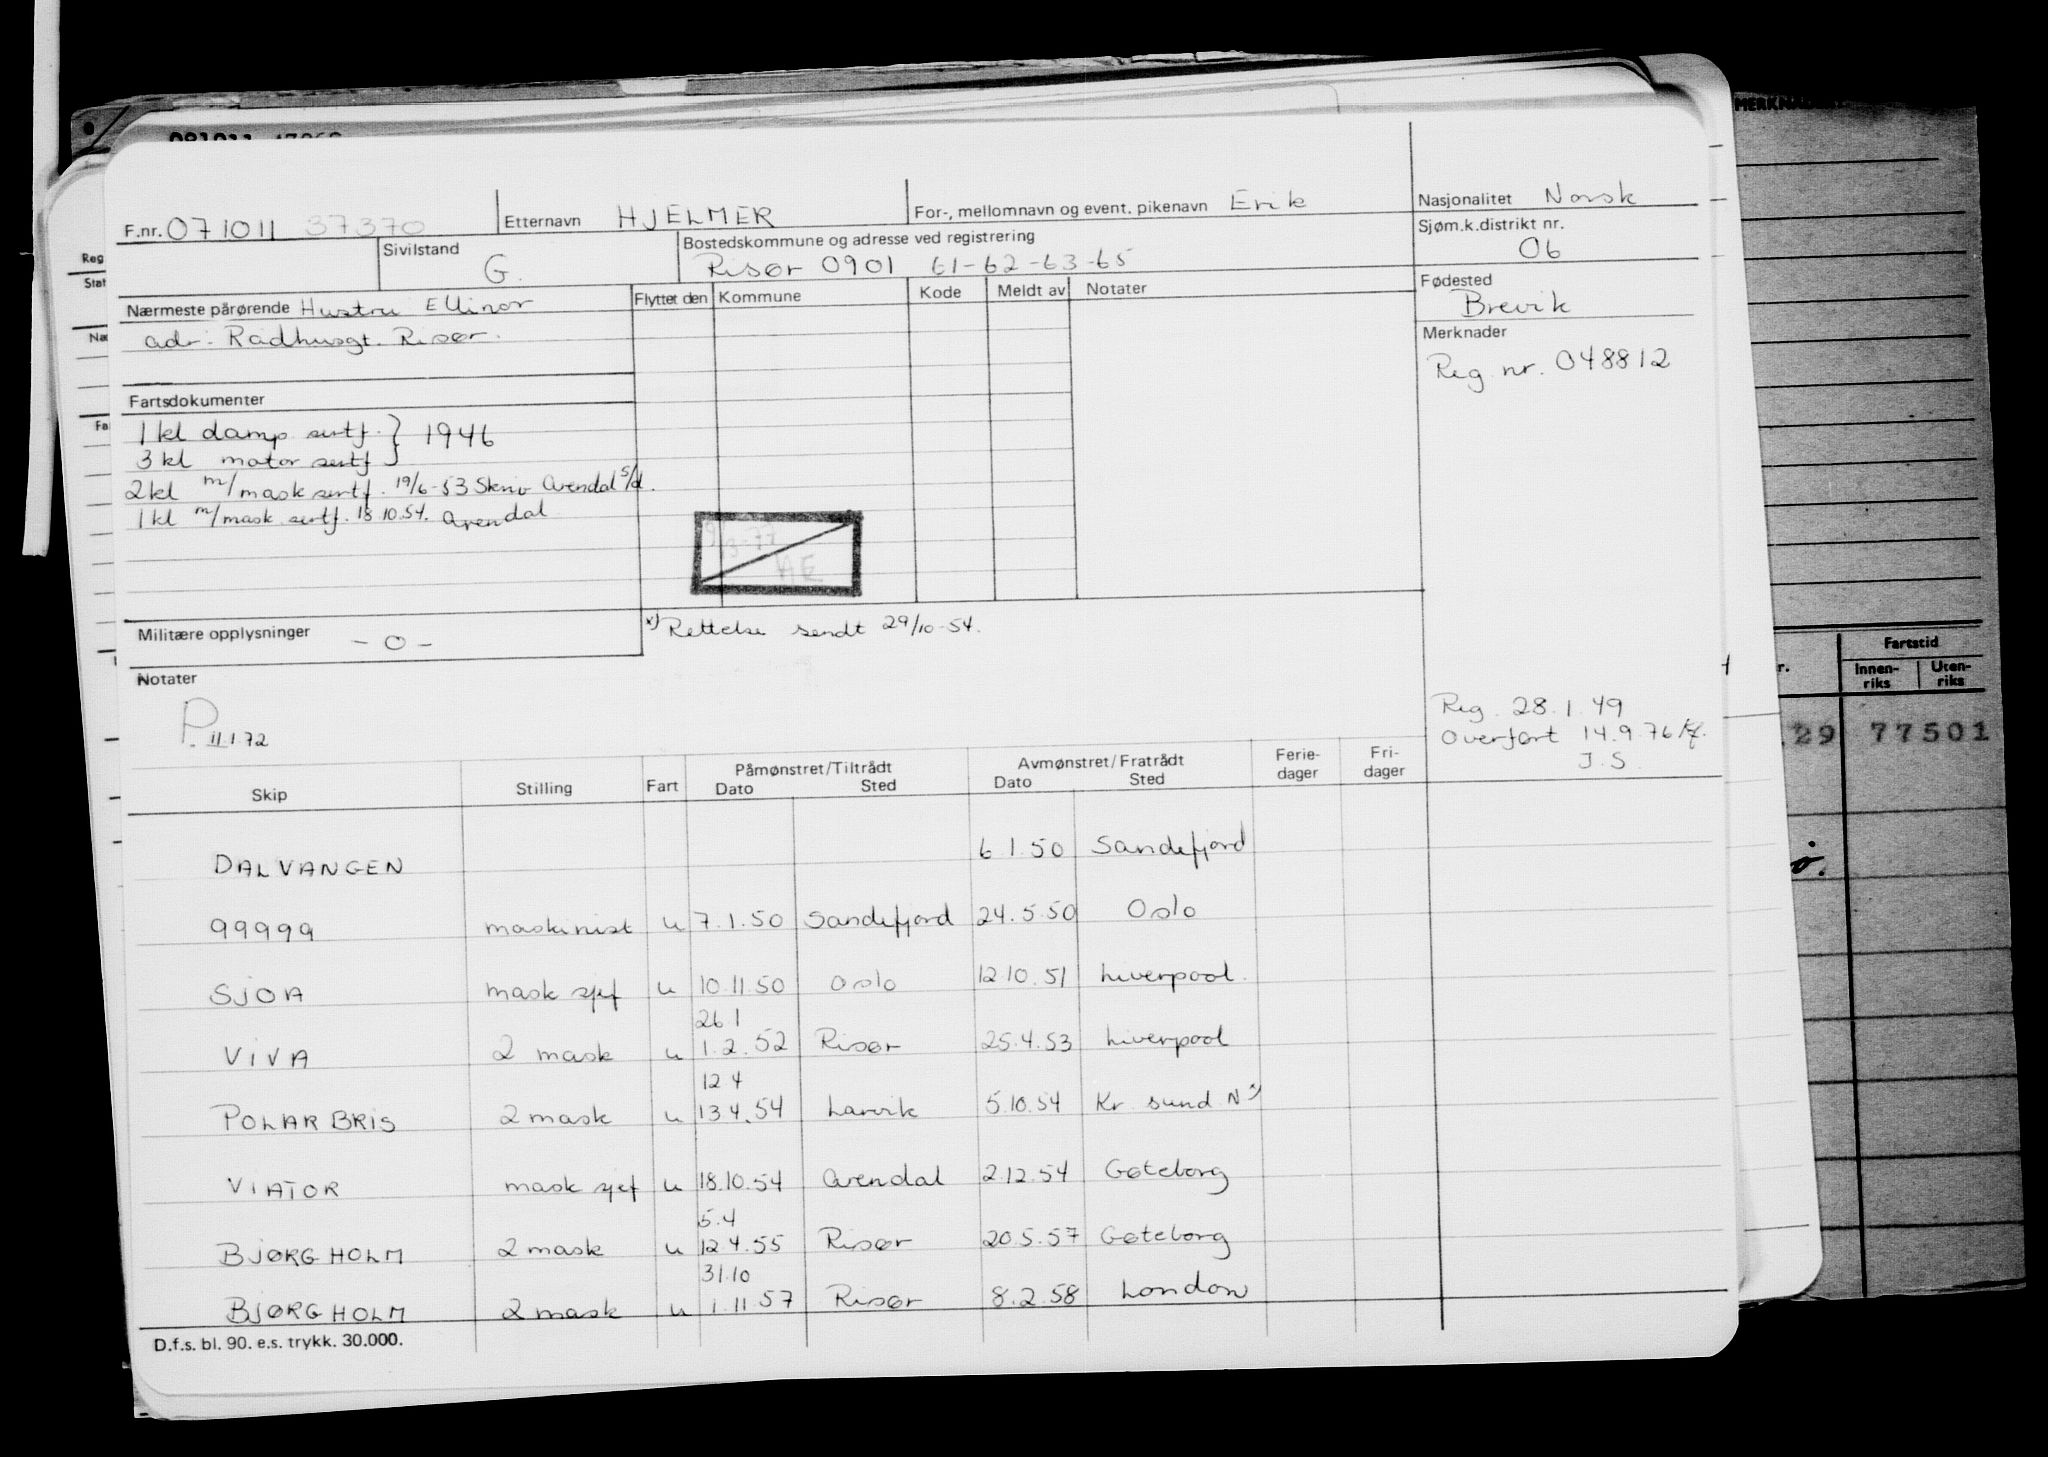 MERKNADER
F.nr. 071011 37370 Etternavn HJELMER For-, mellomnavn og event. pikenavn Erik Nasjonalitet Norsk
Sivilstand G. Bostedskommune og adresse ved registrering Sjøm.k.distrikt nr.
Risør 0901 61-62-63-65 06
Nærmeste pårørende Hustru Ellinor Flyttet den Kommune Kode Meldt av Notater Fødested
Brevik
adr: Rådhusgt. Risør. Merknader
Reg. nr. 048812
Fartsdokumenter
1 kl damp sertf. } 1946
3 kl motor sertf
2 kl m/mask sertf. 19/6-53 Skriv Arendal s/d.
1 kl m/mask. sertf. 18.10.54. Arendal
AE
Militære opplysninger - 0 - x) Rettelse sendt 29/10-54.
Notater
P. 11.1.72
Reg. 28.1.49
Overført 14.9.76
J.S.
Skip Stilling Fart Påmønstret/Tiltrådt Dato Sted Avmønstret/Fratrådt Dato Sted Ferie-dager Fri-dager
DALVANGEN 6.1.50 Sandefjord
99999 maskinist u 7.1.50 Sandefjord 24.5.50 Oslo
SJOA mask sjef u 10.11.50 Oslo 12.10.51 Liverpool.
26 1
VIVA 2 mask u 1.2.52 Risør 25.4.53 Liverpool
12 4
POLARBRIS 2 mask u 13 4.54 Larvik 5.10.54 Kr. sund N x)
VIATOR mask sjef u 18.10.54 Arendal 2.12.54 Gøteborg
5.4
BJØRGHOLM 2 mask u 12.4.55 Risør 20.5.57 Gøteborg
31.10
BJØRGHOLM 2 mask u 1.11.57 Risør 8.2.58 London
D.f.s. bl. 90. e.s. trykk. 30.000.
Reg
Stat
Fa
Fartstid
r. Innen-riks Uten-riks
.29 77501
ø.